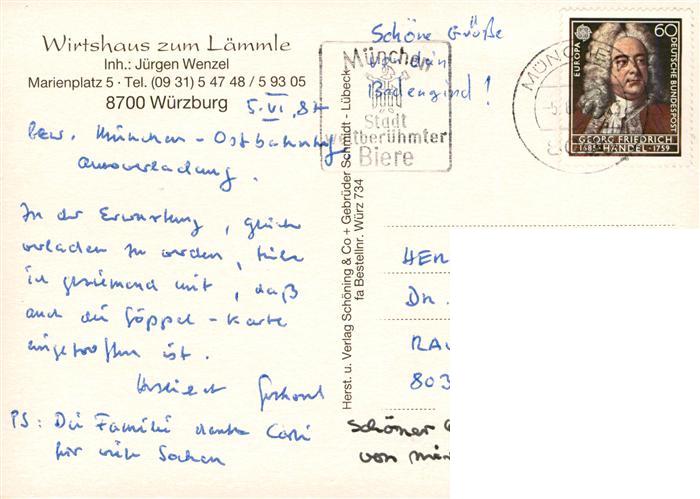 Wirtshaus zum Lämmle
Inh.: Jürgen Wenzel
Marienplatz 5 · Tel. (09 31) 5 47 48 / 5 93 05
8700 Würzburg
5. VI. 87
bzw. München - Ostbahnhof
Autoverladung.
In der Erwartung, gleich
verladen zu werden, teile
ich geziemend mit, daß
auch die Göppel-Karte
eingetroffen ist.
Herzlichst Gerhard
PS: Die Familie dankt
für viele Sachen
Herst. u. Verlag Schöning & Co + Gebrüder Schmidt - Lübeck
fa Bestellnr. Würz 734
Schöne Grüße
München
Stadt
weltberühmter
Biere
MÜNCHEN
EUROPA
60
DEUTSCHE BUNDESPOST
GEORG FRIEDRICH
1685 HÄNDEL 1759
HER
DR.
RAU
803
Schöner
von